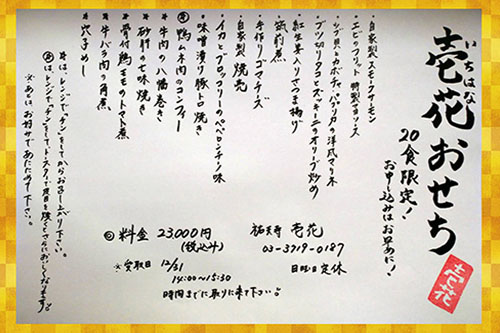 いちはな
壱花おせち
20食限定!
お申し込みはお早めに!
・自家製スモークサーモン
・エビのフリット 特製マヨソース
・ツブ貝とカボチャ、パプリカの洋風マリネ
・ブツ切りタコとズッキーニのオリーブ炒め
・紅生姜入りさつま揚げ
・筑前煮
・手作りゴマチーズ
・自家製焼売
・イカとブロッコリーのペペロンチーノ味
・味噌漬け豚トロ焼き
鴨ムネ肉のコンフィー
*牛肉の八幡巻き
*砂肝の七味焼き
*骨付鶏モモのトマト煮
*牛バラ肉の角煮
*穴子めし
*は、レンジで"チン"をしてからお召し上がり下さい。
は、レンジで"チン"をして、トースターで皮目を焼くとさらにおいしくなります。
※あとは、お好みであたためて下さい。
◎料金 23000円
(税込み)
※受取日 12/31
14:00~15:30
時間までに取りに来て下さい
祐天寺 壱花
03-3719-0187
日曜日定休
壱花